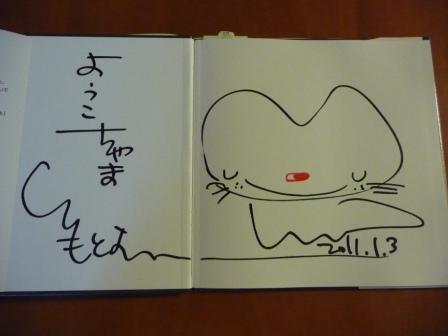 ようこ
ちゃま
もとよ
2011.1.3